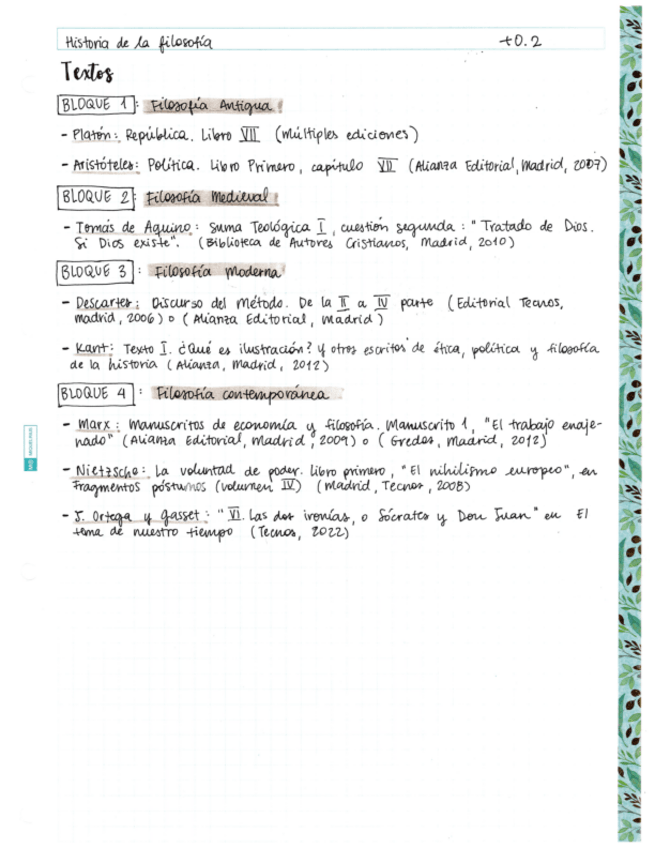 Historia de la filosofía +0.2
Textos
BLOQUE 1: Filosofía Antigua
- Platón: República. Libro VII (múltiples ediciones)
- Aristóteles: Política. Libro Primero, capítulo VII (Alianza Editorial, Madrid, 2007)
BLOQUE 2: Filosofía Medieval
- Tomás de Aquino: Suma Teológica I, cuestión segunda: "Tratado de Dios.
Si Dios existe". (Biblioteca de Autores Cristianos, Madrid, 2010)
BLOQUE 3: Filosofía Moderna
- Descartes: Discurso del método. De la II a IV parte (Editorial Tecnos,
madrid, 2006) o (Alianza Editorial, madrid)
- Kant: Texto I. ¿Qué es ilustración? y otros escritos de ética, política y filosofía
de la historia (Alianza, Madrid, 2012)
BLOQUE 4: Filosofía contemporánea
- Marx: Manuscritos de economía y filosofía. Manuscrito 1, "El trabajo enaje-
nado" (Alianza Editorial, Madrid, 2009) o (Gredos, Madrid, 2012)
- Nietzsche: La voluntad de poder. libro primero, "El nihilismo europeo", en
Fragmentos póstumos (volumen IV) (Madrid, Tecnos, 2008)
- J. Ortega y Gasset: "VI. Las dos ironías, o Sócrates y Don Juan" en El
tema de nuestro tiempo (Tecnos, 2022)